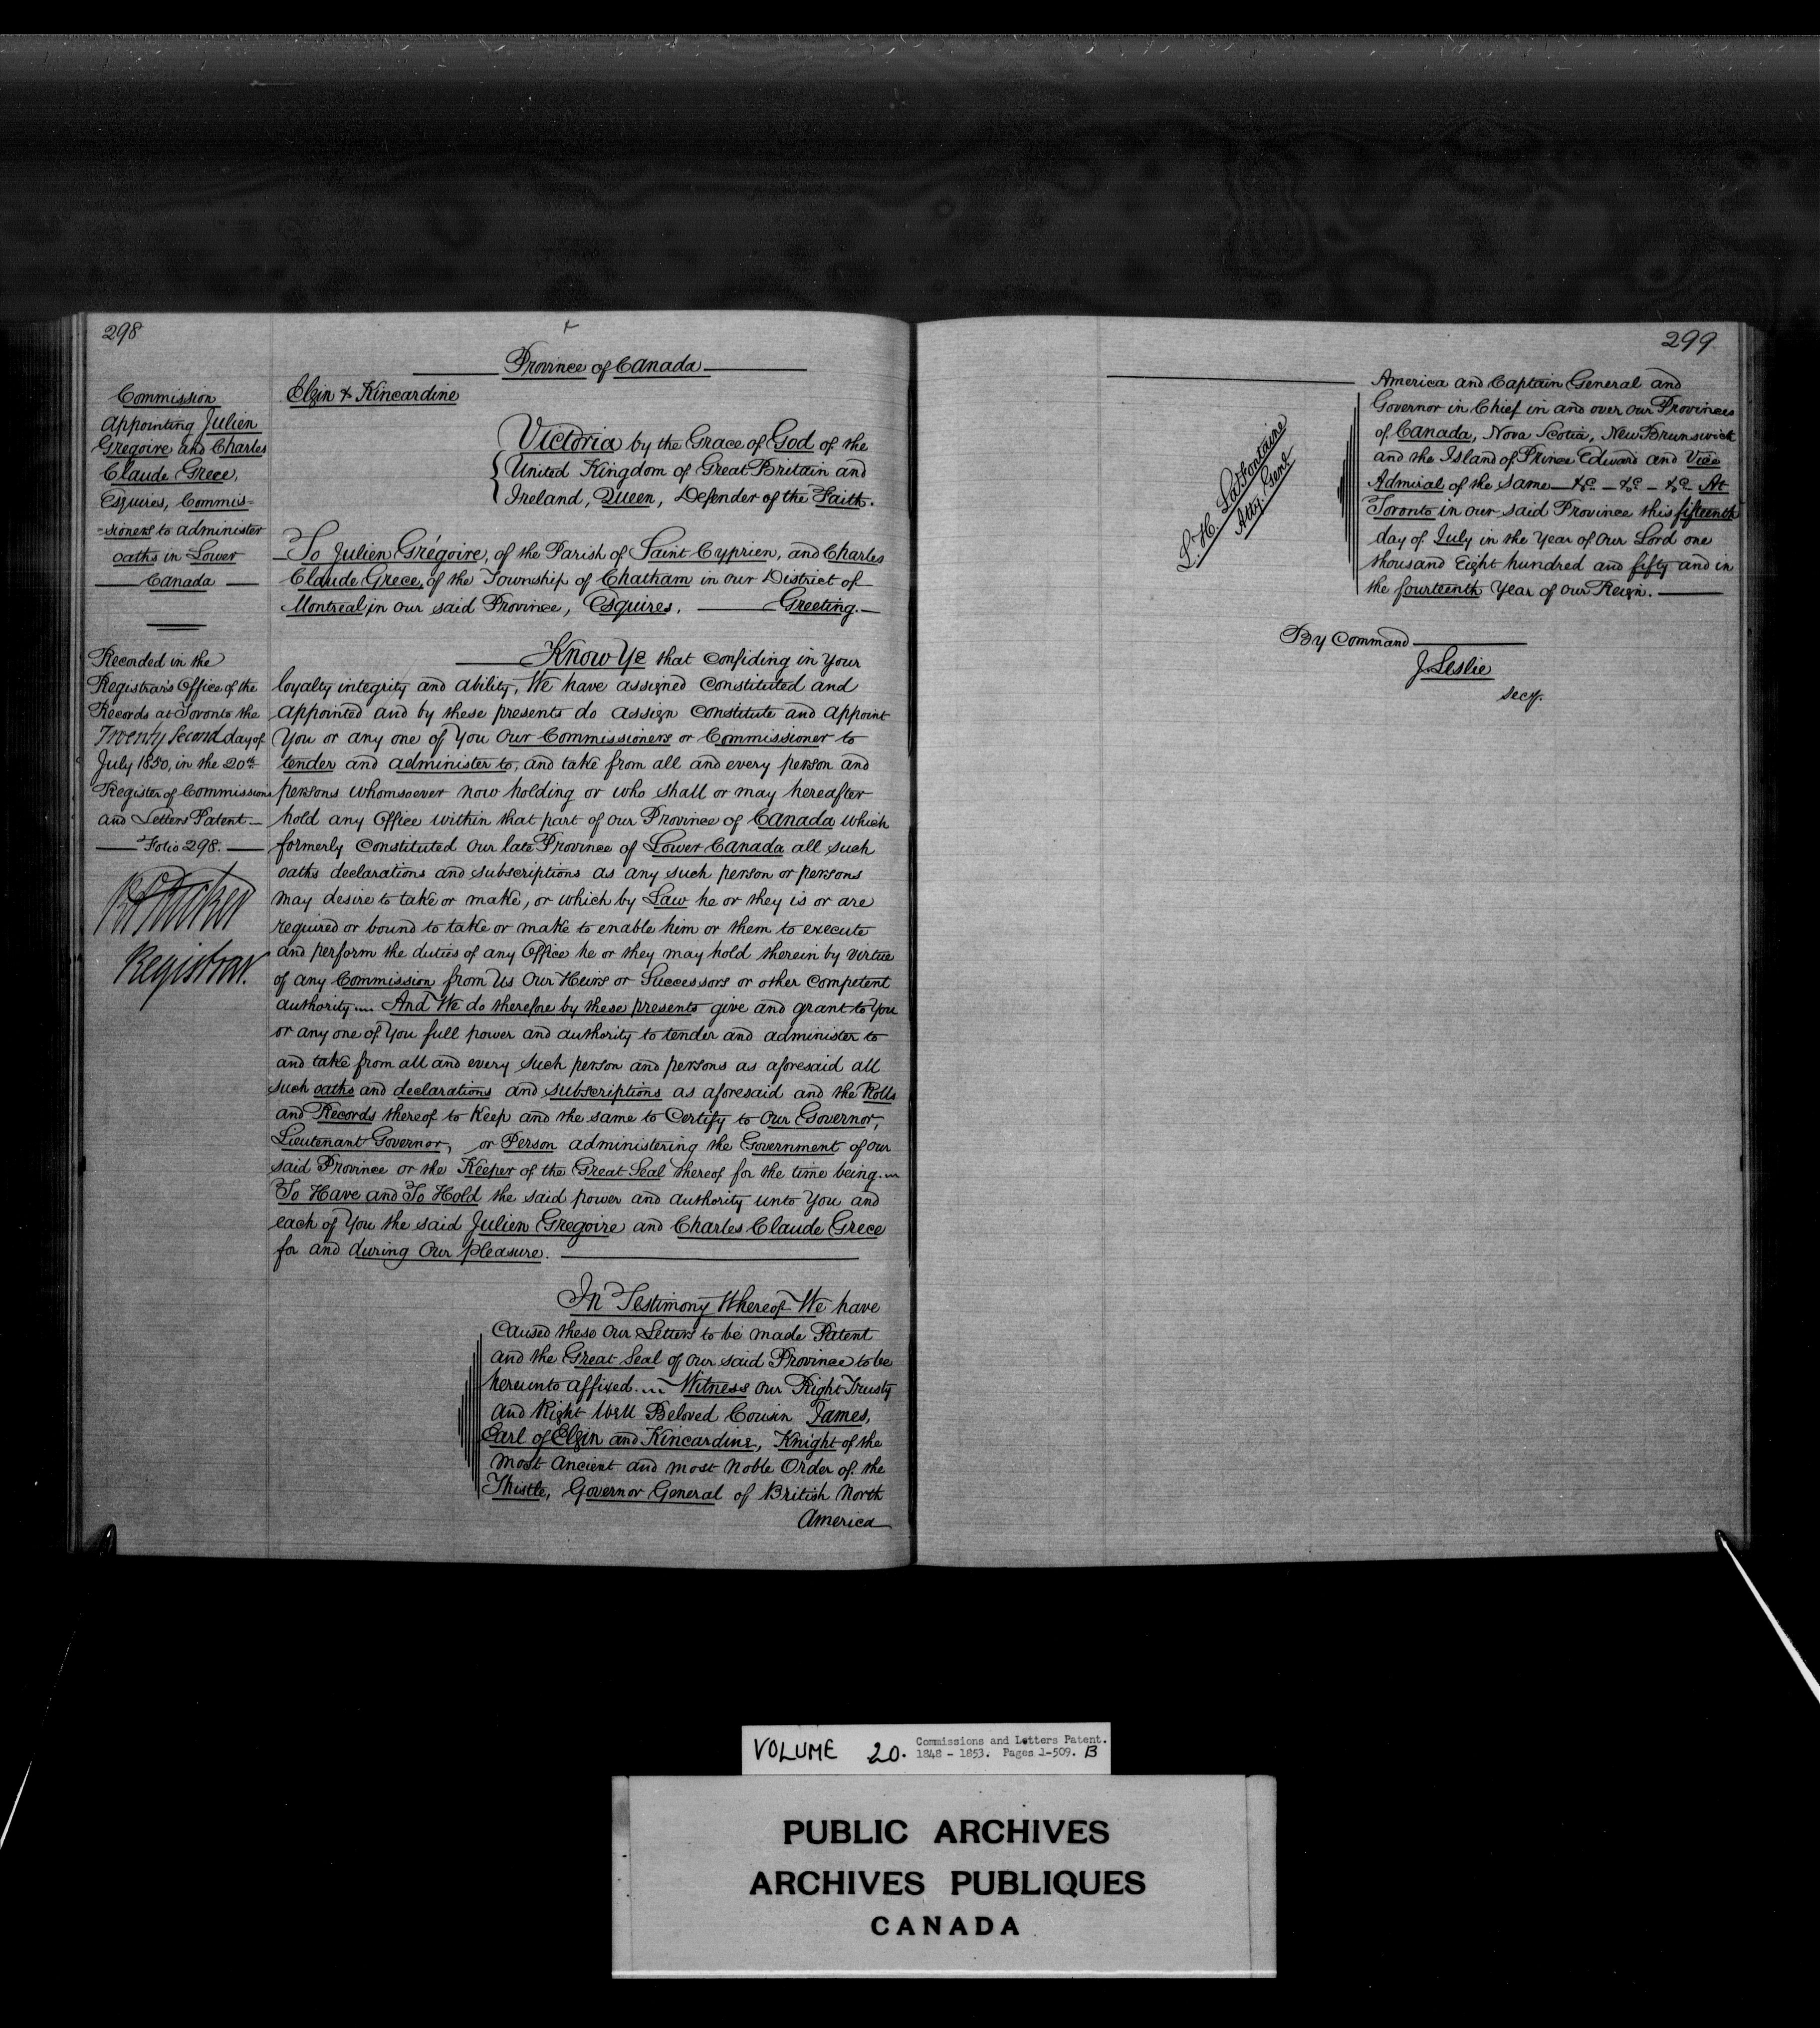 298
Province of Canada
Commission
Appointing Julien
Gregoire and Charles
Claude Grece,
Esquires, Commis=
=sioners to administer
oaths in Lower
Canada
Recorded in the
Registrar's Office of the
Records at Toronto the
Twenty Second day of
July 1850, in the 20th
Register of Commissions
and Letters Patent
Folio 298.
Registrar.
Elgin & Kincardine
Victoria by the Grace of God of the
United Kingdom of Great Britain and
Ireland, Queen, Defender of the Faith.
To Julien Grégoire, of the Parish of Saint Cyprien, and Charles
Claude Grece, of the Township of Chatham in our District of
Montreal in our said Province, Esquires. Greeting.
Know Ye that confiding in Your
loyalty integrity and ability, We have assigned constituted and
appointed and by these presents do assign constitute and appoint
You or any one of You Our Commissioners or Commissioner to
tender and administer to, and take from all and every person and
persons whomsoever now holding or who shall or may hereafter
hold any Office within that part of our Province of Canada which
formerly constituted Our late Province of Lower Canada all such
oaths declarations and subscriptions as any such person or persons
may desire to take or make, or which by Law he or they is or are
required or bound to take or make to enable him or them to execute
and perform the duties of any Office he or they may hold therein by virtue
of any Commission from Us Our Heirs or Successors or other Competent
authority... And We do therefore by these presents give and grant to You
or any one of You full power and authority to tender and administer to
and take from all and every such person and persons as aforesaid all
such oaths and declarations and subscriptions as aforesaid and the Rolls
and Records thereof to Keep and the same to Certify to Our Governor,
Lieutenant Governor, or Person administering the Government of our
said Province or the Keeper of the Great Seal thereof for the time being...
To Have and To Hold the said power and authority unto You and
each of You the said Julien Gregoire and Charles Claude Grece
for and during Our pleasure.
In Testimony Whereof We have
Caused these Our Letters to be made Patent
and the Great Seal of our said Province to be
hereunto affixed... Witness Our Right Trusty
and Right Well Beloved Cousin James,
Earl of Elgin and Kincardine, Knight of the
most Ancient and most Noble Order of the
Thistle, Governor General of British North
America
299
America and Captain General and
Governor in Chief in and over our Provinces
of Canada, Nova Scotia, New Brunswick
and the Island of Prince Edward and Vice
Admiral of the Same — &c — &c — &c At
Toronto in our said Province this fifteenth
day of July in the Year of Our Lord one
thousand Eight hundred and fifty and in
the fourteenth Year of Our Reign.
L. H. LaFontaine
Atty. Genl
By Command
J. Leslie
Secy.
VOLUME 20. Commissions and Letters Patent.
1848 - 1853. Pages 1-509. B
PUBLIC ARCHIVES
ARCHIVES PUBLIQUES
CANADA